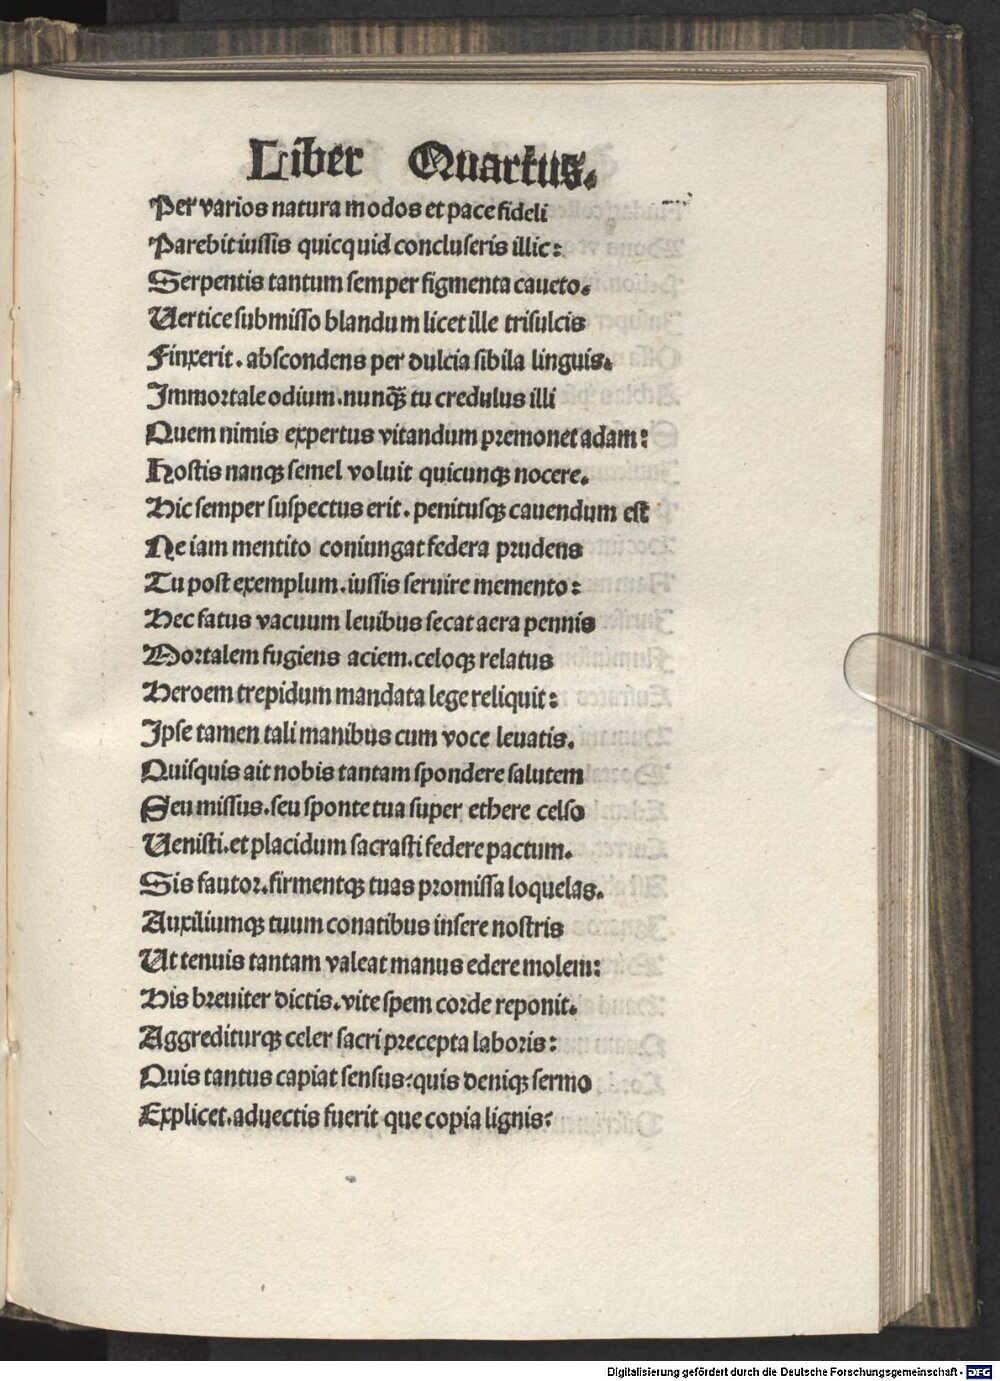 Liber Quartus.
Per varios natura modos et pace fideli
Parebit iussis quicquid concluseris illic:
Serpentis tantum semper figmenta caueto.
Uertice submisso blandum licet ille trisulcis
Finxerit. abscondens per dulcia sibila linguis.
Immortale odium. nunq̃ tu credulus illi
Quem nimis expertus vitandum premonet adam:
Hostis nanq; semel voluit quicunq; nocere.
Hic semper suspectus erit. penitusq; cauendum est
Ne iam mentito coniungat federa prudens
Tu post exemplum. iussis seruire memento:
Hec fatus vacuum leuibus secat aera pennis
Mortalem fugiens aciem. celoq; relatus
Heroem trepidum mandata lege reliquit:
Ipse tamen tali manibus cum voce leuatis.
Quisquis ait nobis tantam spondere salutem
Seu missus. seu sponte tua super ethere celso
Uenisti. et placidum sacrasti federe pactum.
Sis fautor. firmentq; tuas promissa loquelas.
Auxiliumq; tuum conatibus insere nostris
Ut tenuis tantam valeat manus edere molem:
His breuiter dictis. vite spem corde reponit.
Aggrediturq; celer sacri precepta laboris:
Quis tantus capiat sensus: quis deniq; sermo
Explicet. aduectis fuerit que copia lignis:
Digitalisierung gefördert durch die Deutsche Forschungsgemeinschaft - DFG